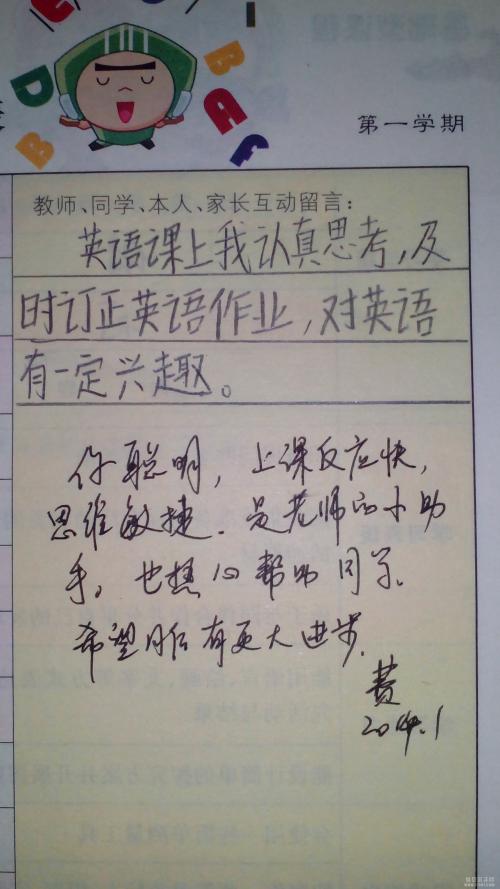 第一学期
教师、同学、本人、家长互动留言：
英语课上我认真思考,及
时订正英语作业,对英语
有一定兴趣。
你聪明,上课反应快,
思维敏捷.是老师的小助
手。也热心帮助同学.
希望日后有更大进步.
费
2014.1